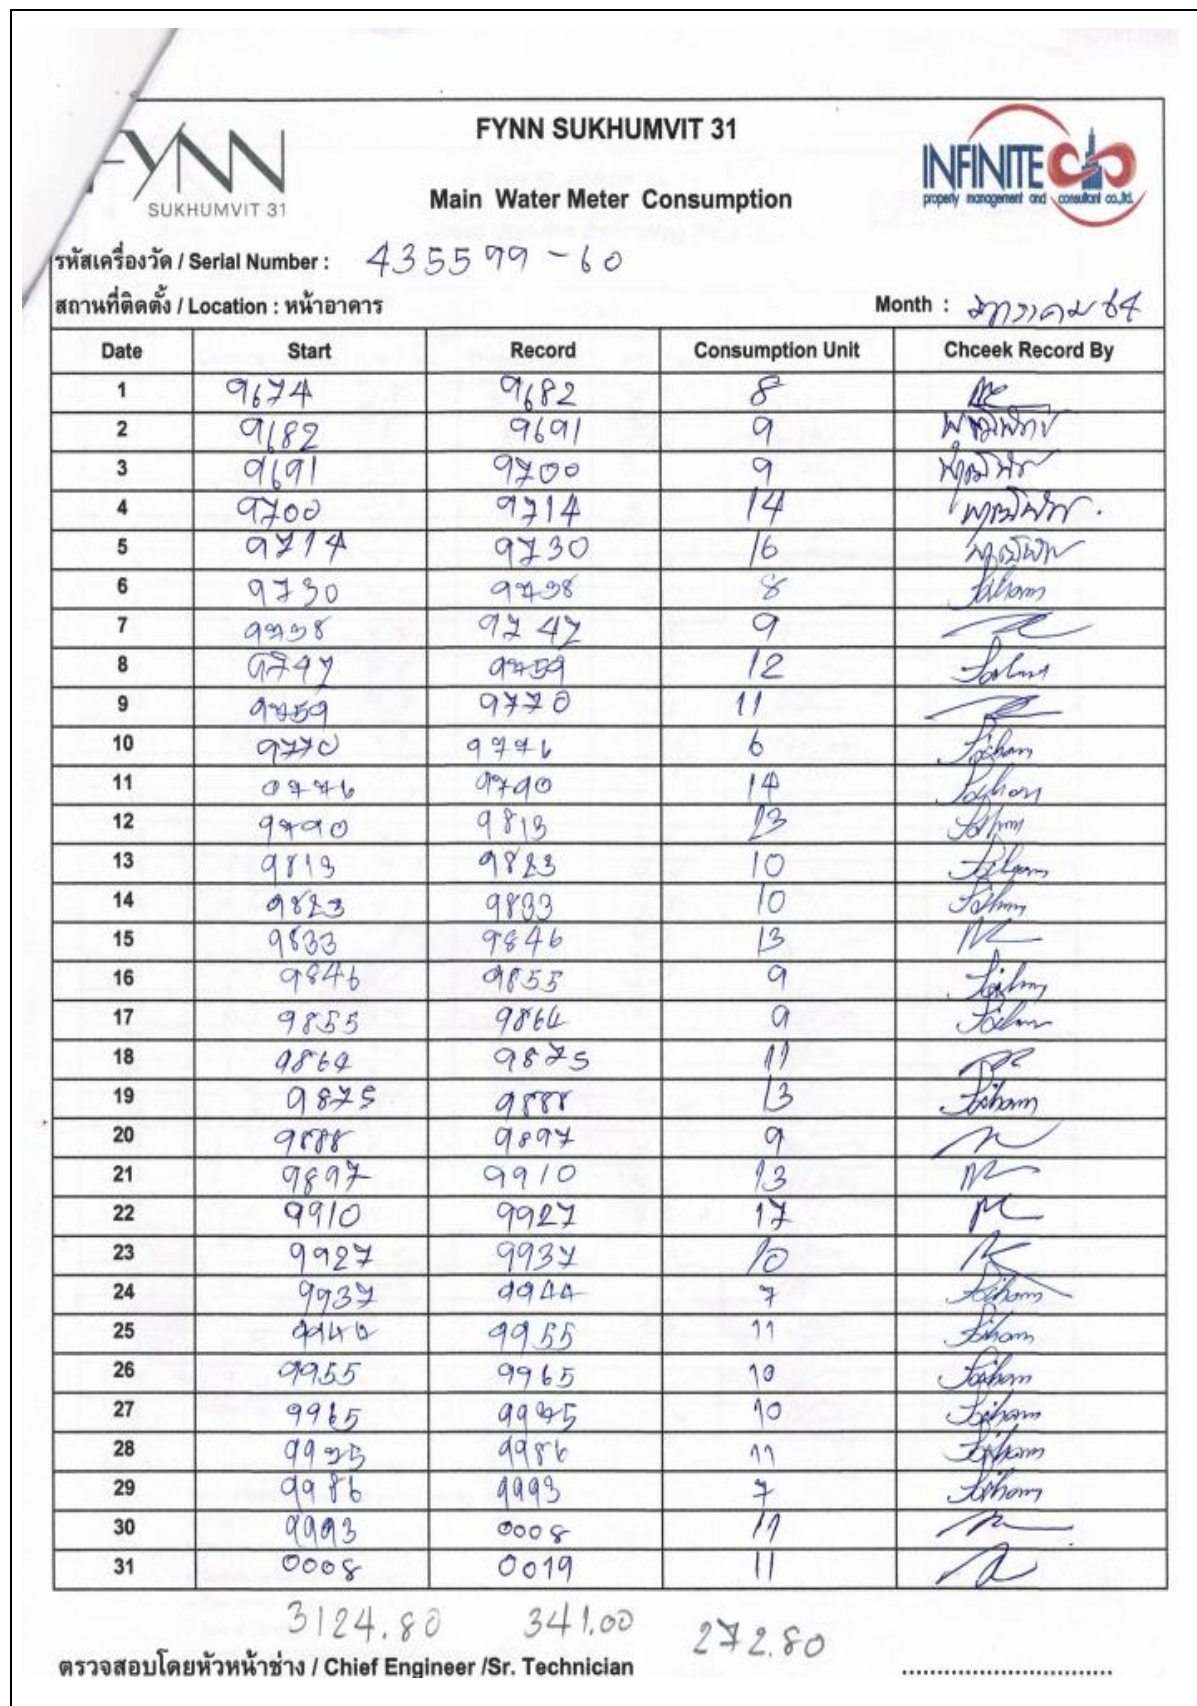 FYNN
SUKHUMVIT 31
FYNN SUKHUMVIT 31
Main Water Meter Consumption
INFINITE
property management and consultant co.,ltd.
รหัสเครื่องวัด / Serial Number : 435599-60
สถานที่ติดตั้ง / Location : หน้าอาคาร Month : มกราคม 64
Date Start Record Consumption Unit Chceek Record By
1 9674 9682 8
2 9682 9691 9
3 9691 9700 9
4 9700 9714 14
5 9714 9730 16
6 9730 9738 8
7 9738 9747 9
8 9747 9759 12
9 9759 9770 11
10 9770 9776 6
11 9776 9790 14
12 9790 9813 23
13 9813 9823 10
14 9823 9833 10
15 9833 9846 13
16 9846 9855 9
17 9855 9864 9
18 9864 9875 11
19 9875 9888 13
20 9888 9897 9
21 9897 9910 13
22 9910 9927 17
23 9927 9937 10
24 9937 9944 7
25 9944 9955 11
26 9955 9965 10
27 9965 9975 10
28 9975 9986 11
29 9986 9993 7
30 9993 0008 11
31 0008 0019 11
3124.80 341.00 272.80
ตรวจสอบโดยหัวหน้าช่าง / Chief Engineer /Sr. Technician ..............................